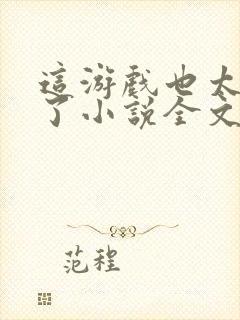 這游戲也太
了小說全文
范程